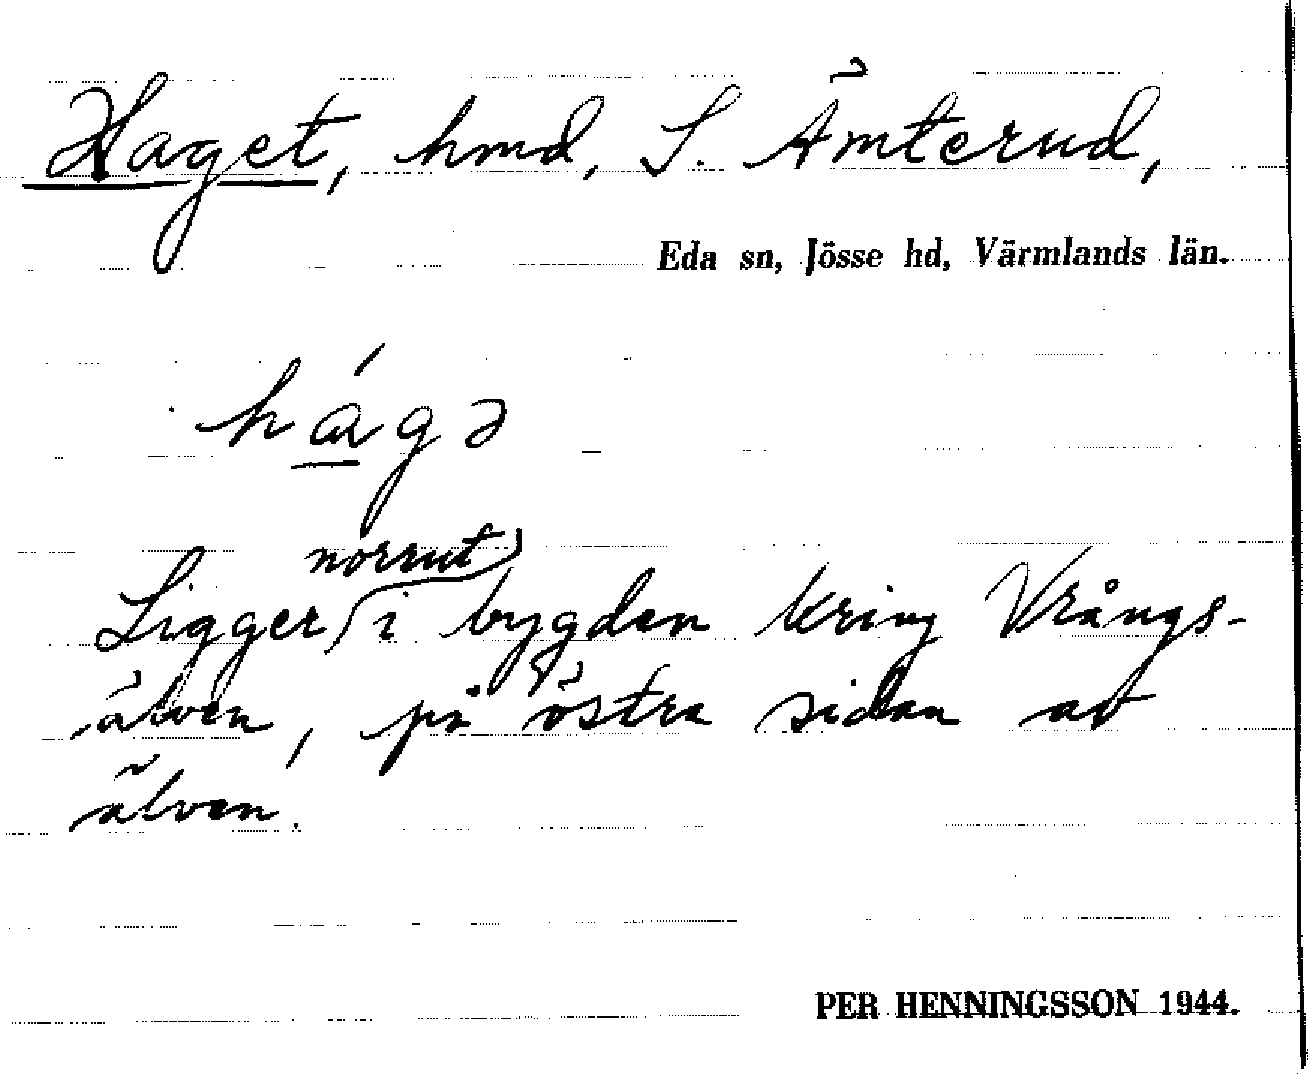 Haget, hmd, S. Ämterud,
Eda sn, Jösse hd, Värmlands län.
há̲gə
norrut
Ligger i bygden kring Vrångs-
älven, på östra sidan av
älven.
PER HENNINGSSON 1944.